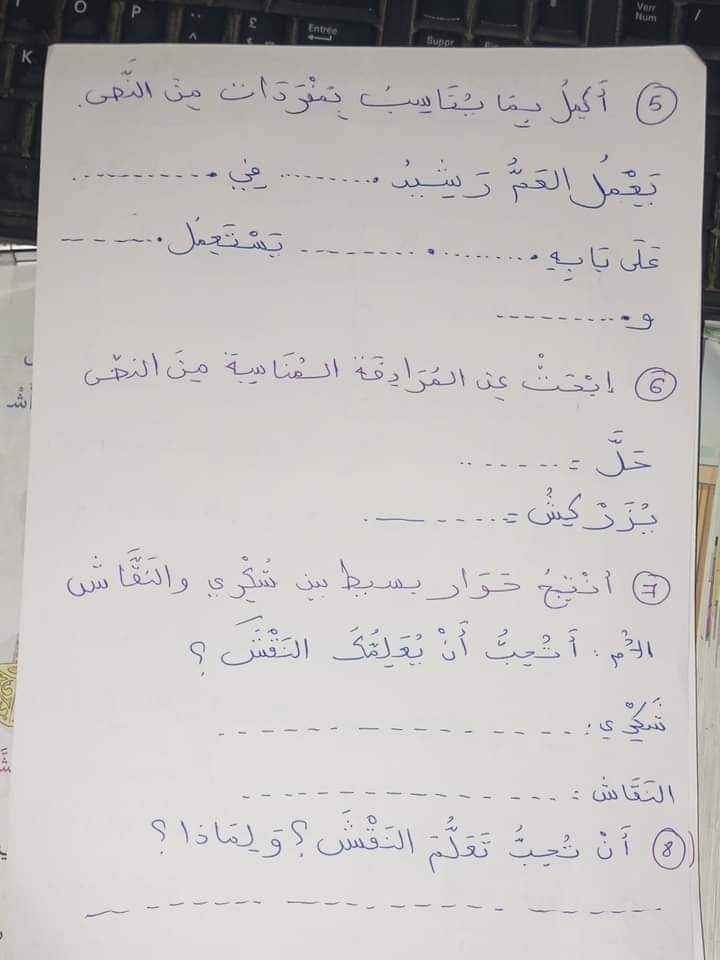 O
P
£
Entrée
Verr
Num
/
K
Suppr
5 أَكْمِلُ بِمَا يُنَاسِبُ بِمُفْرَدَات مِنَ النَّصِّ.
يَعْمَلُ العَمُّ رَشِيدُ .......... فِي ..........
عَلَى بَابِهِ .......... .......... يَسْتَعْمِلُ ..........
و ..........
6 إبْحَثْ عن المُرَادِفَة المُنَاسِبَة مِنَ النصّ
حَلَّ = ..........
يُزَرْكِشُ = ..........
7 أنْتِجُ حِوَار بسيط بين شُكْرِي والنَقَّاش
الأم : أَتُحِبُّ أَنْ يُعَلِّمُكَ النَقْشَ ؟
شُكْرِي : ..........
النَقَاش : ..........
8 أَنْ تُحِبُّ تَعَلُّمَ النَقْشَ ؟ وَ لِمَاذَا ؟